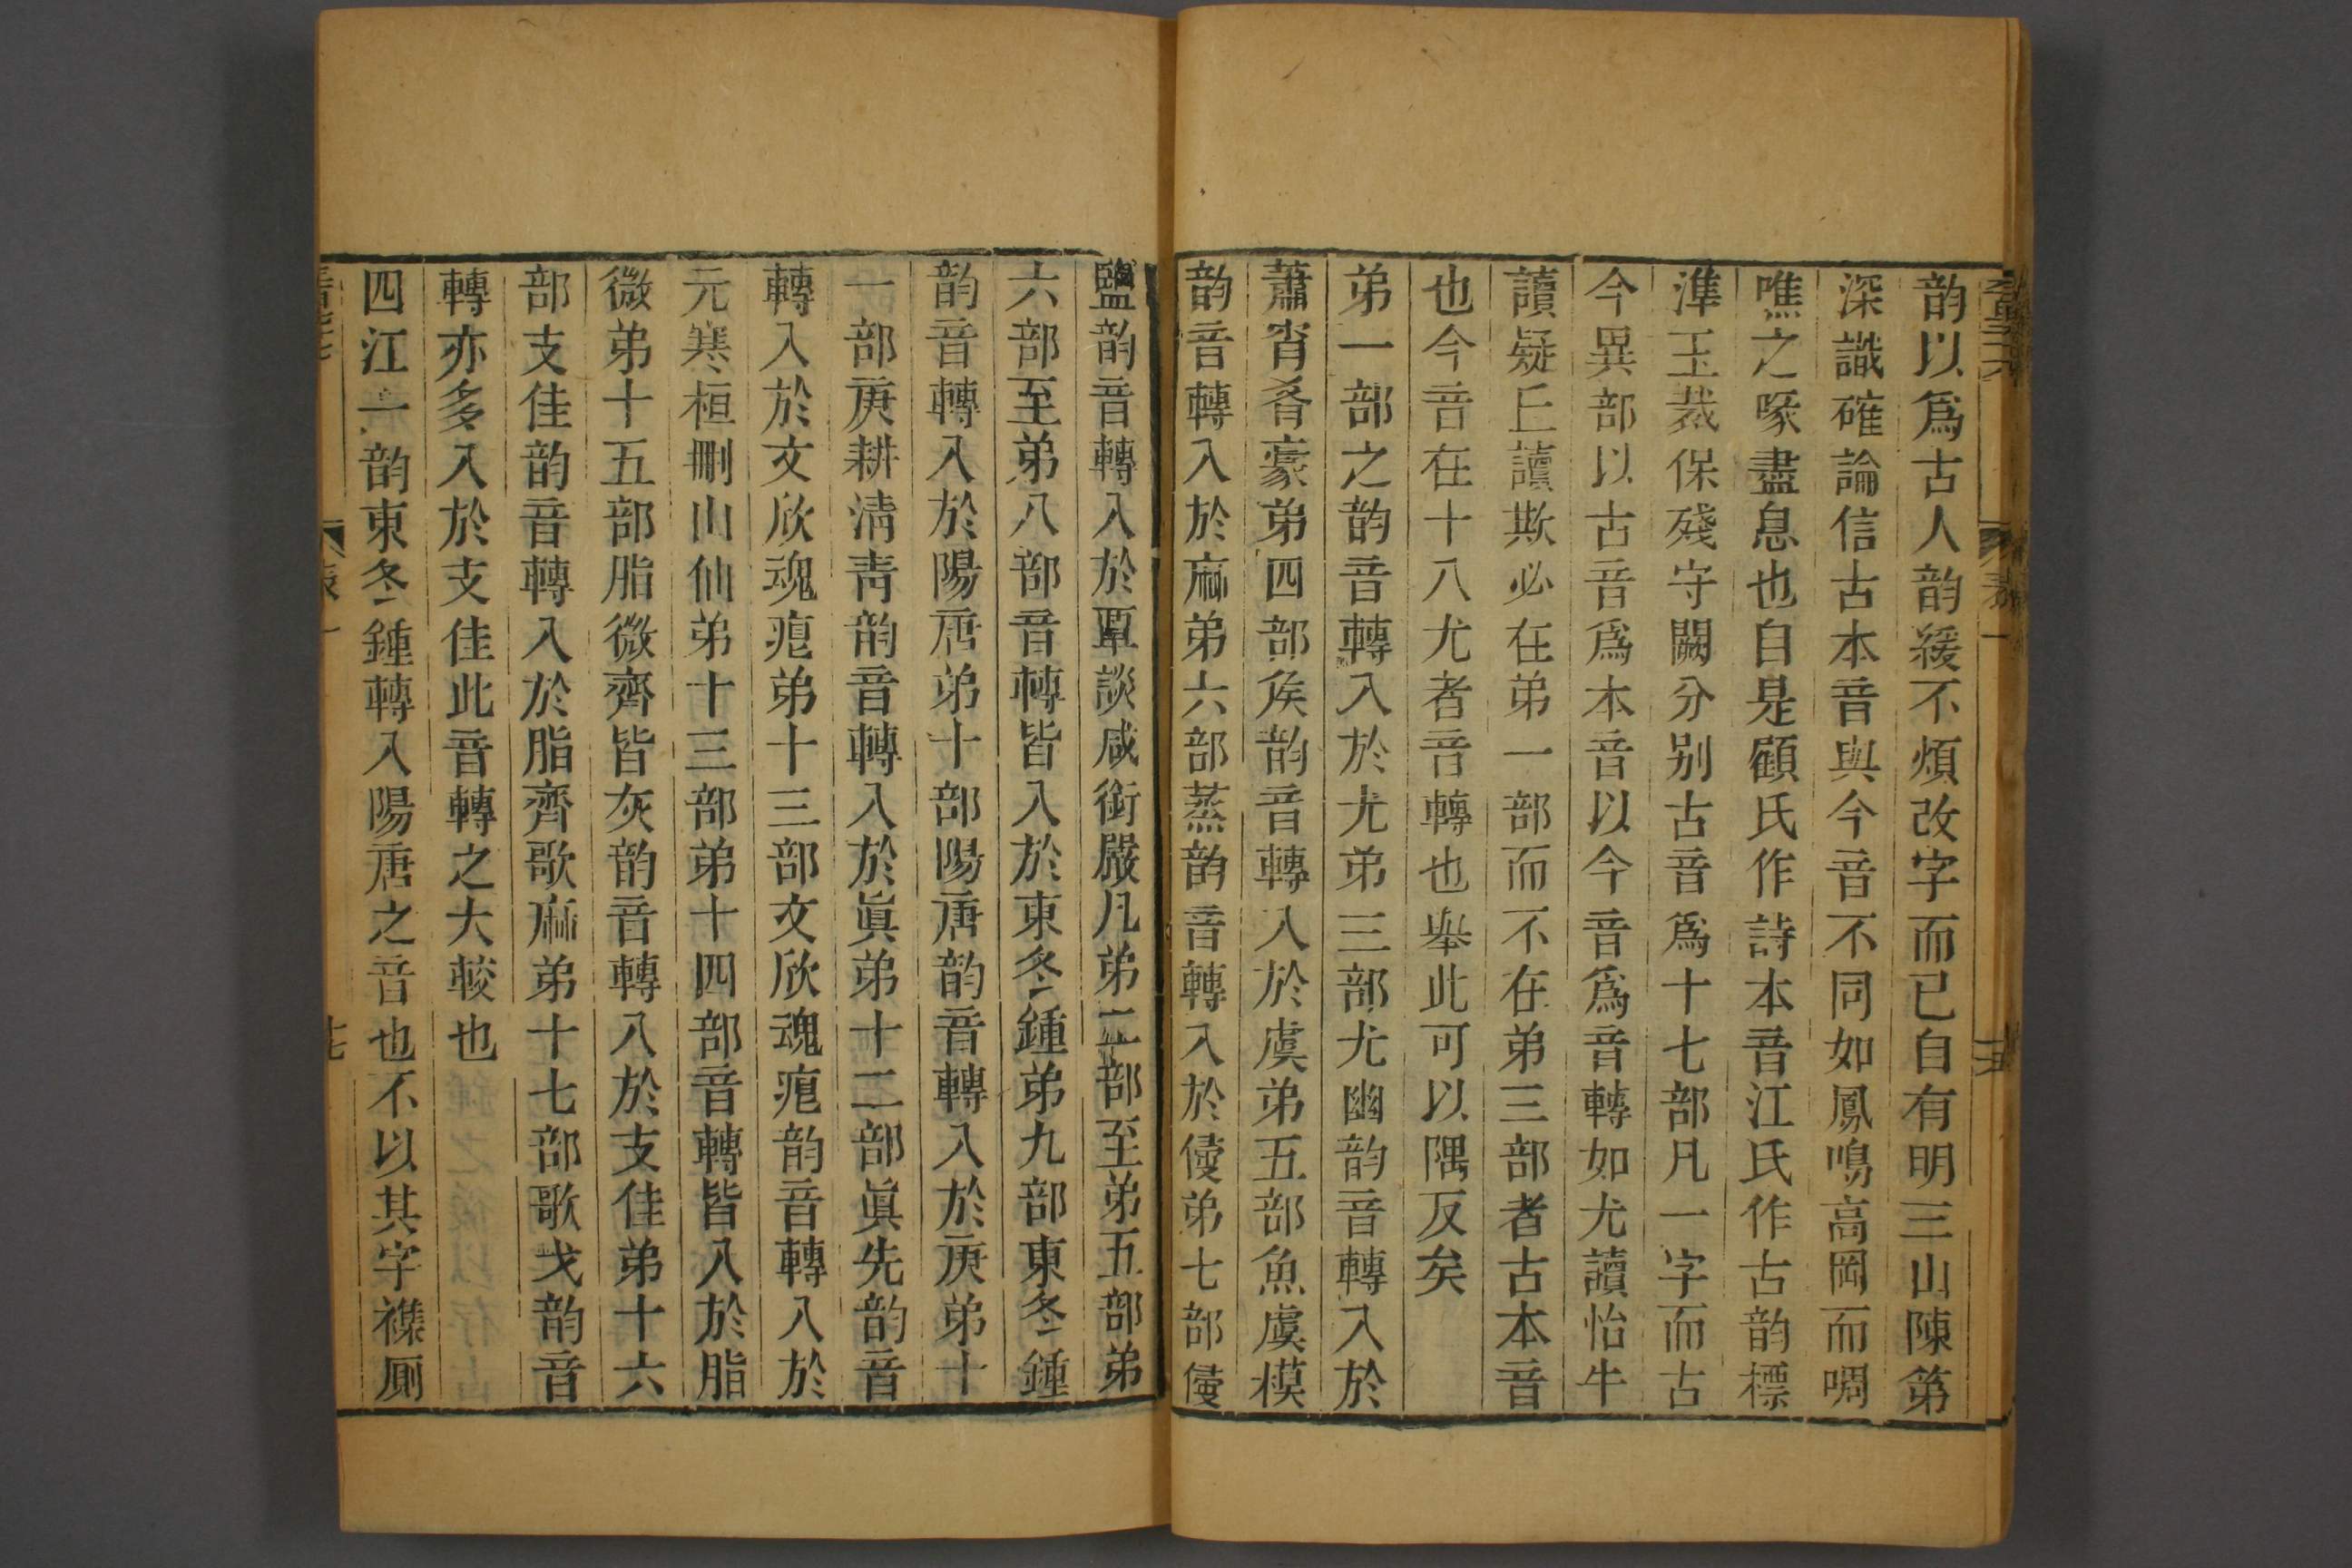 韵以爲古人韵緩不煩改字而已自有明三山陳第
深識確論信古本音與今音不同如鳳鳴高岡而啁
噍之喙盡息也自是顧氏作詩本音江氏作古韵標
準玉裁保殘守闕分别古音爲十七部凡一字而古
今異部以古音爲本音以今音爲音轉如尤讀怡牛
讀疑丘讀欺必在弟一部而不在弟三部者古本音
也今音在十八尤者音轉也舉此可以隅反矣
弟一部之韵音轉入於尤弟三部尤幽韵音轉入於
蕭宵肴豪弟四部矦韵音轉入於虞弟五部魚虞模
韵音轉入於麻弟六部蒸韵音轉入於侵弟七部侵
鹽韵音轉入於覃談咸銜嚴凡弟二部至弟五部弟
六部至弟八部音轉皆入於東冬鍾弟九部東冬鍾
韵音轉入於陽唐弟十部陽唐韵音轉入於庚弟十
一部庚耕淸靑韵音轉入於眞弟十二部眞先韵音
轉入於文欣魂痕弟十三部文欣魂痕韵音轉入於
元寒桓刪山仙弟十三部弟十四部音轉皆入於脂
微弟十五部脂微齊皆灰韵音轉入於支佳弟十六
部支佳韵音轉入於脂齊歌麻弟十七部歌戈韵音
轉亦多入於支佳此音轉之大較也
四江一韵東冬鍾轉入陽唐之音也不以其字襍厠